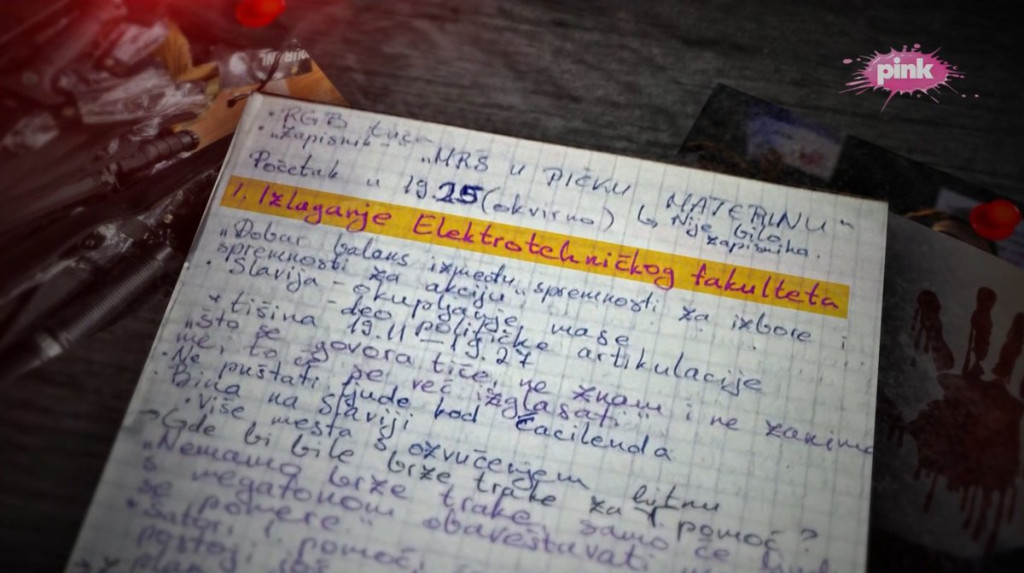 pink
• RGB tuča
• "zapisnik"- "MRŠ U PIČKU MATERINU"
Početak u 19.25 (okvirno) ↳ Nije bilo zapisnika.
1. Izlaganje Elektrotehničkog fakulteta
"Dobar balans između spremnosti za izbore i
spremnosti za akciju"
• Slavija - okupljanje mase
- deo političke artikulacije
* tišina 19.11 - 19.27
"Što se govora tiče, ne znam i ne zanima
me, to će se već izglasati"
• Ne puštati ljude kod Ćacilenda
• Bina na Slaviji
• Više mesta s ozvučenjem
→ Gde bi bile brze trake za hitnu pomoć?
"Nemamo brze trake, samo će
s megafonom obaveštavati
se pomere"
• Šatori i pomoći
postoji
plan